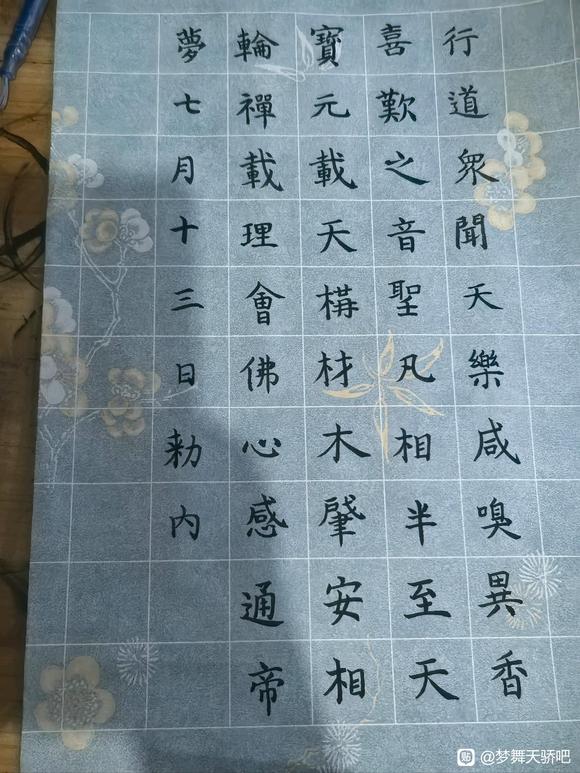 行道眾聞天樂咸嗅異香
喜歎之音聖凡相半至天
寶元載天構材木肇安相
輪禪載理會佛心感通帝
夢七月十三日勑内
@梦舞天骄吧